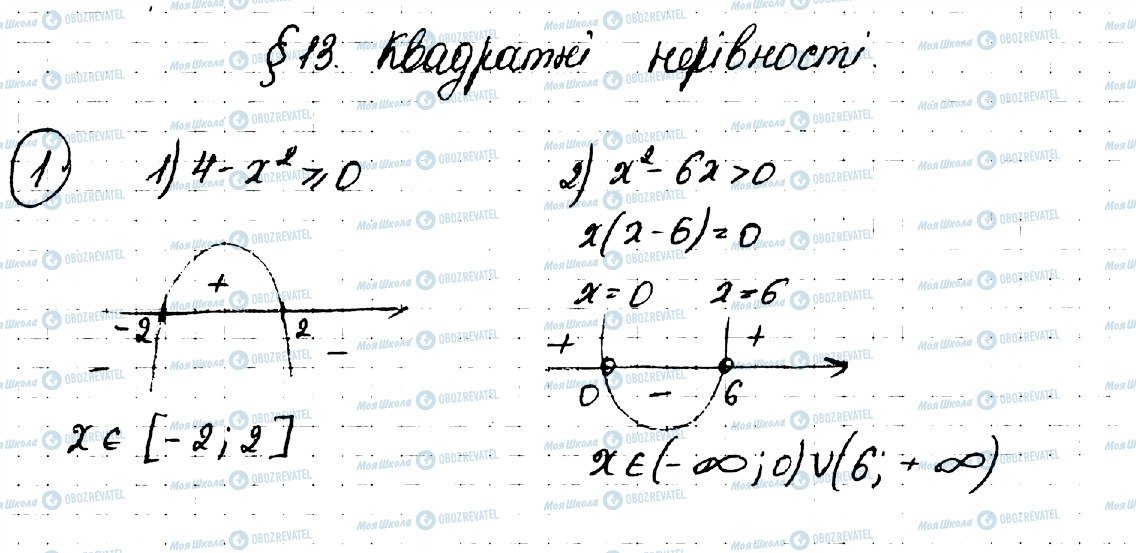 § 13. Квадратні нерівності.
1. 1) 4 - x² ≥ 0
+
-2 2
- -
x ∈ [-2; 2]
2) x² - 6x > 0
x(x - 6) = 0
x = 0 x = 6
+ +
0 - 6
x ∈ (-∞; 0) ∪ (6; +∞)
Моя Школа OBOZREVATEL